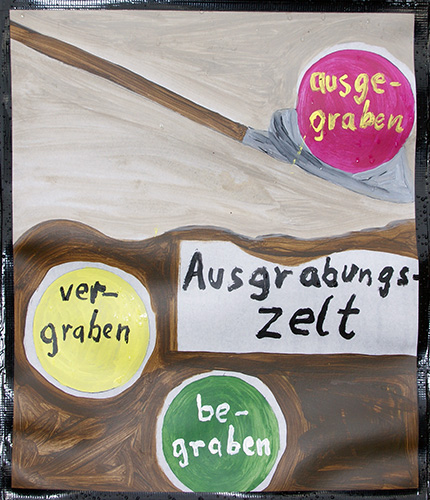 ausge-
graben
ver-
graben
Ausgrabungs-
zelt
be-
graben